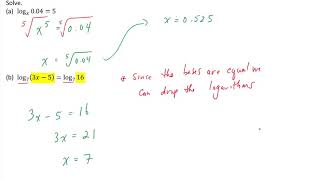 Solve.
(a) logₓ 0.04 = 5
⁵√x⁵ = ⁵√0.04
x = ⁵√0.04
x = 0.525
(b) log₇(3x − 5) = log₇ 16
* Since the bases are equal we
can drop the logarithms
3x − 5 = 16
3x = 21
x = 7